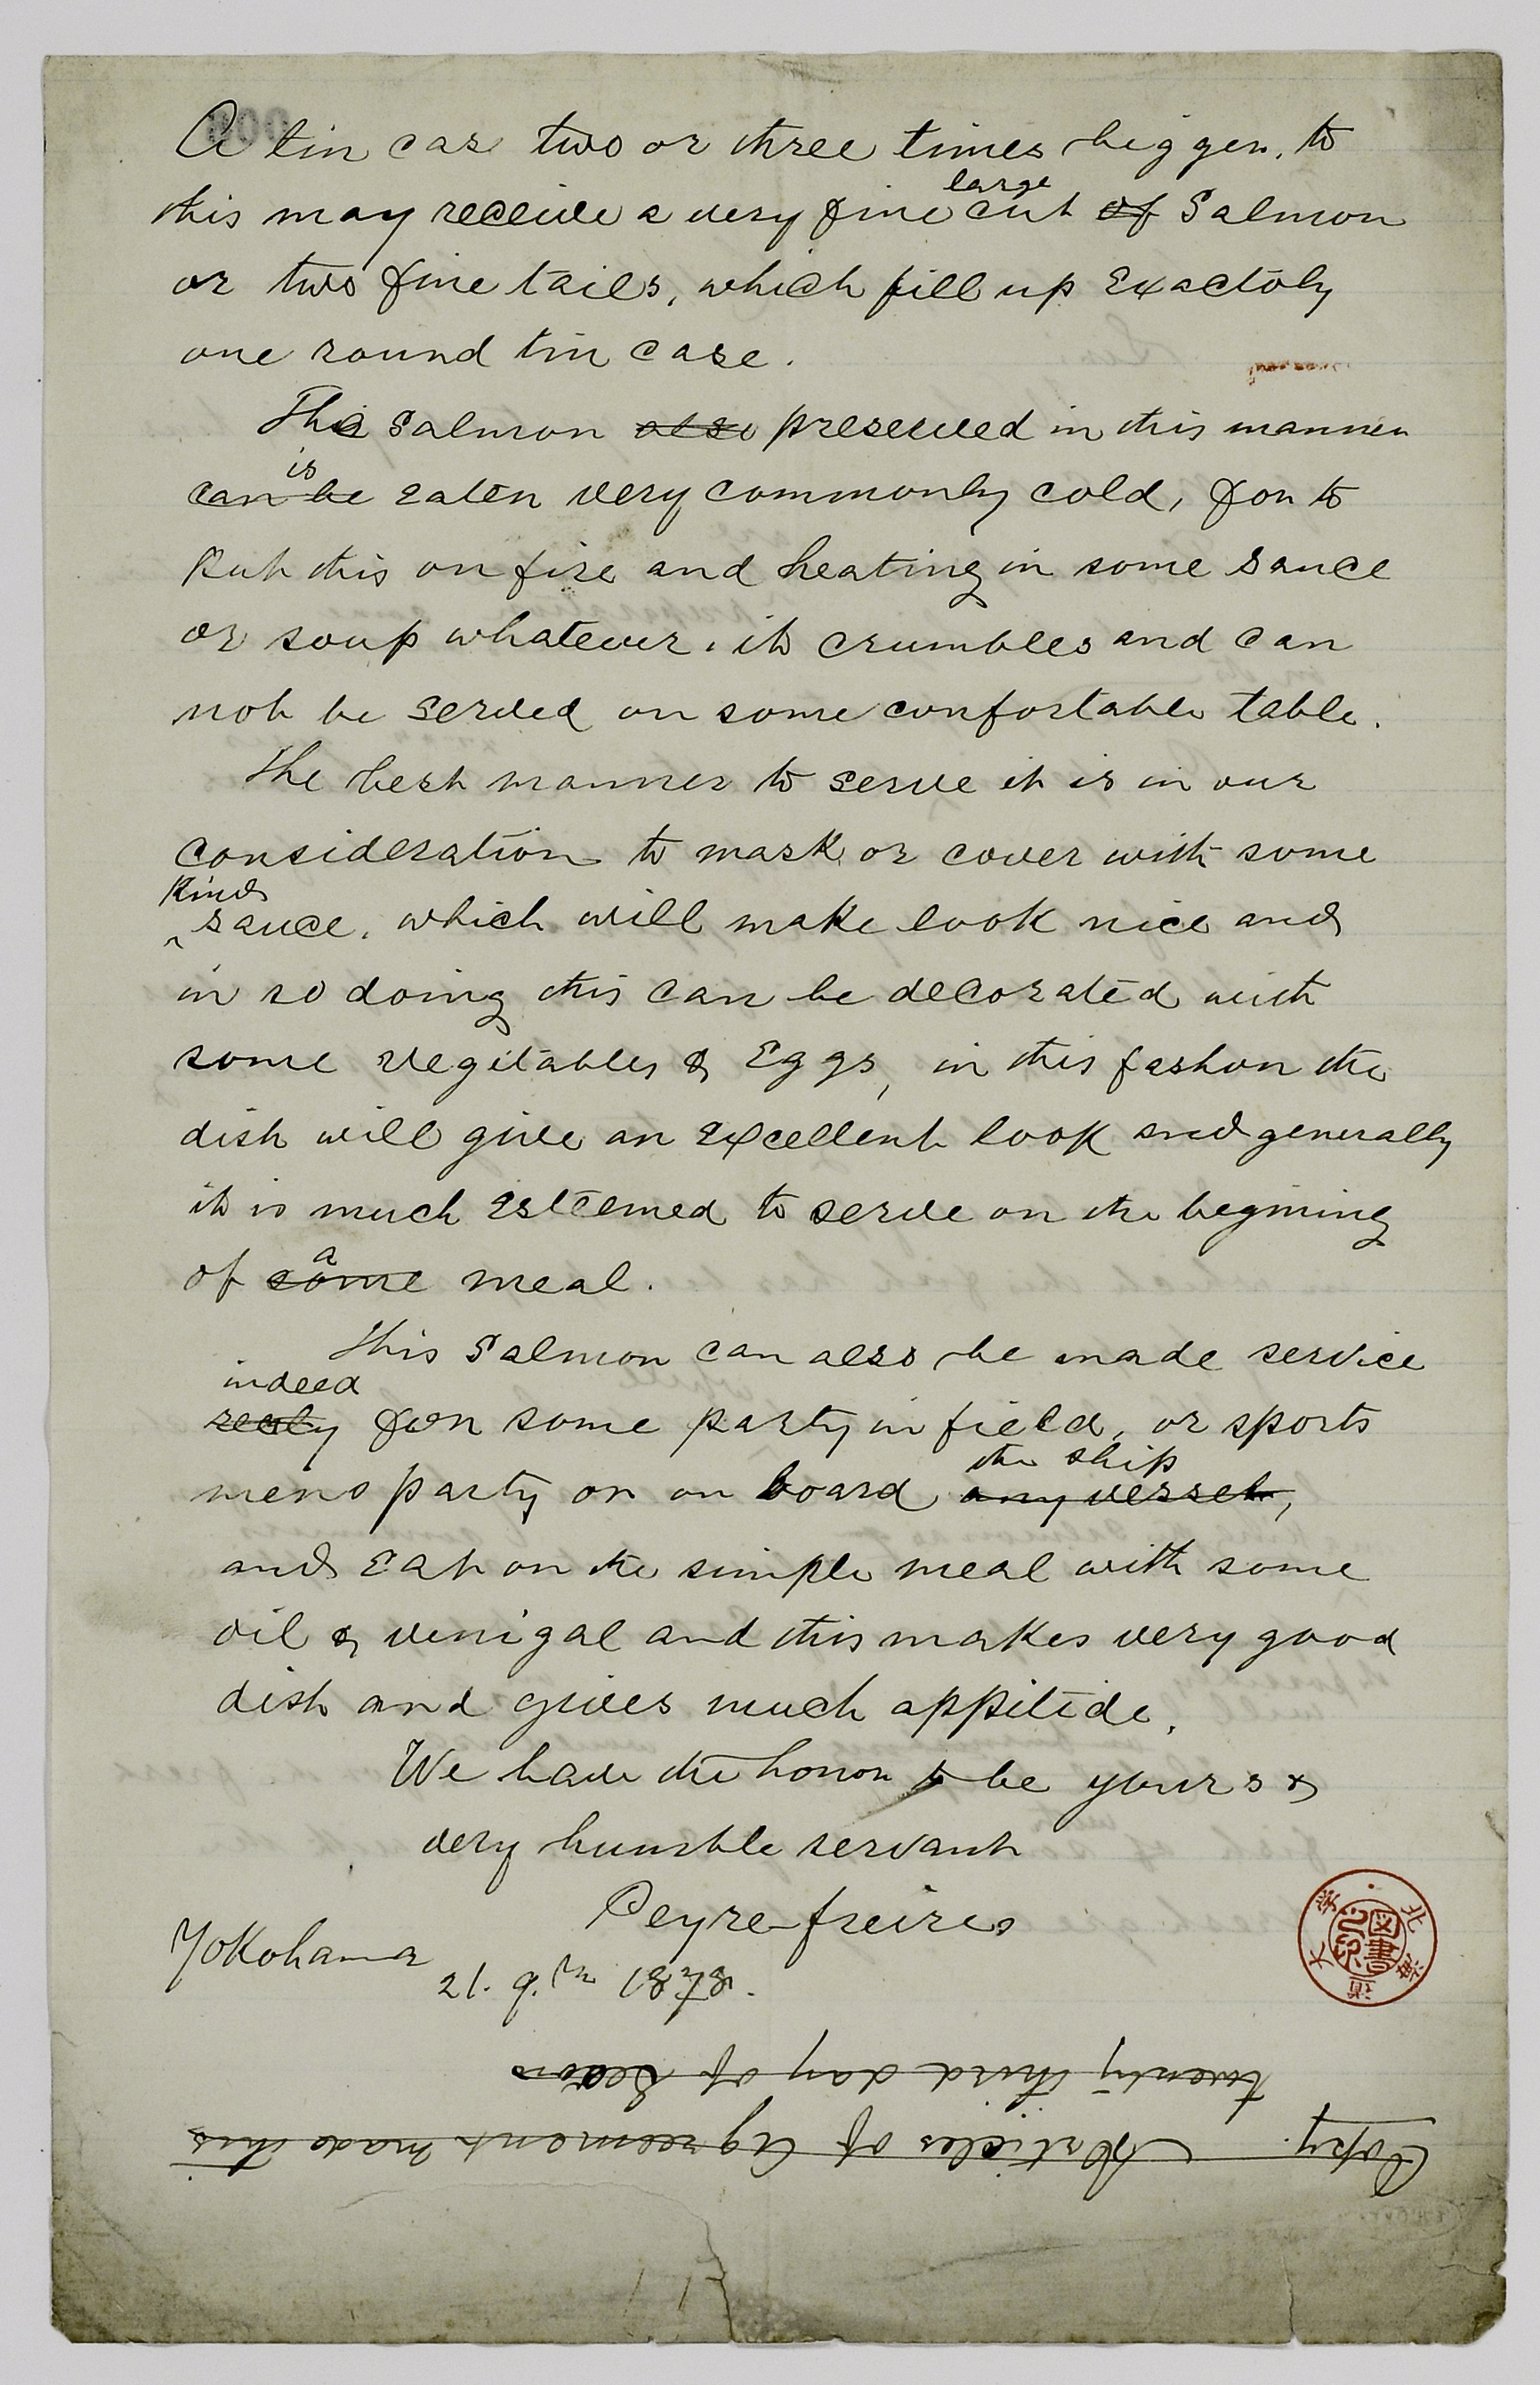 A tin case two or three times bigger, to
this may receive a very fine large cut of Salmon
or two fine tails, which fill up Exactoly
one round tin case.
The Salmon also preserved in this manner
can be is eaten very commonly cold, for to
Put this on fire and heating in some sauce
or soup whatever, it crumbles and can
not be served on some confortable table.
The best manner to serve it is in our
consideration to mask or cover with some
kind sauce, which will make look nice and
in so doing this can be decorated with
some vegitables & Eggs, in this fashon the
dish will give an excellent look and generally
it is much esteemed to serve on the begining
of some a meal.
This Salmon can also be made service
realy indeed for some party in field, or sports
mens party or on board any vessel the ship,
and Eat on the simple meal with some
oil & venigal and this makes very good
dish and gives much appitide.
We have the honor to be yours &
very humble servant
Peyre freires
Yokohama
21. 9.th 1878.
北海道大学
図書之印
Copy. Articles of Agreement made this
twenty third day of